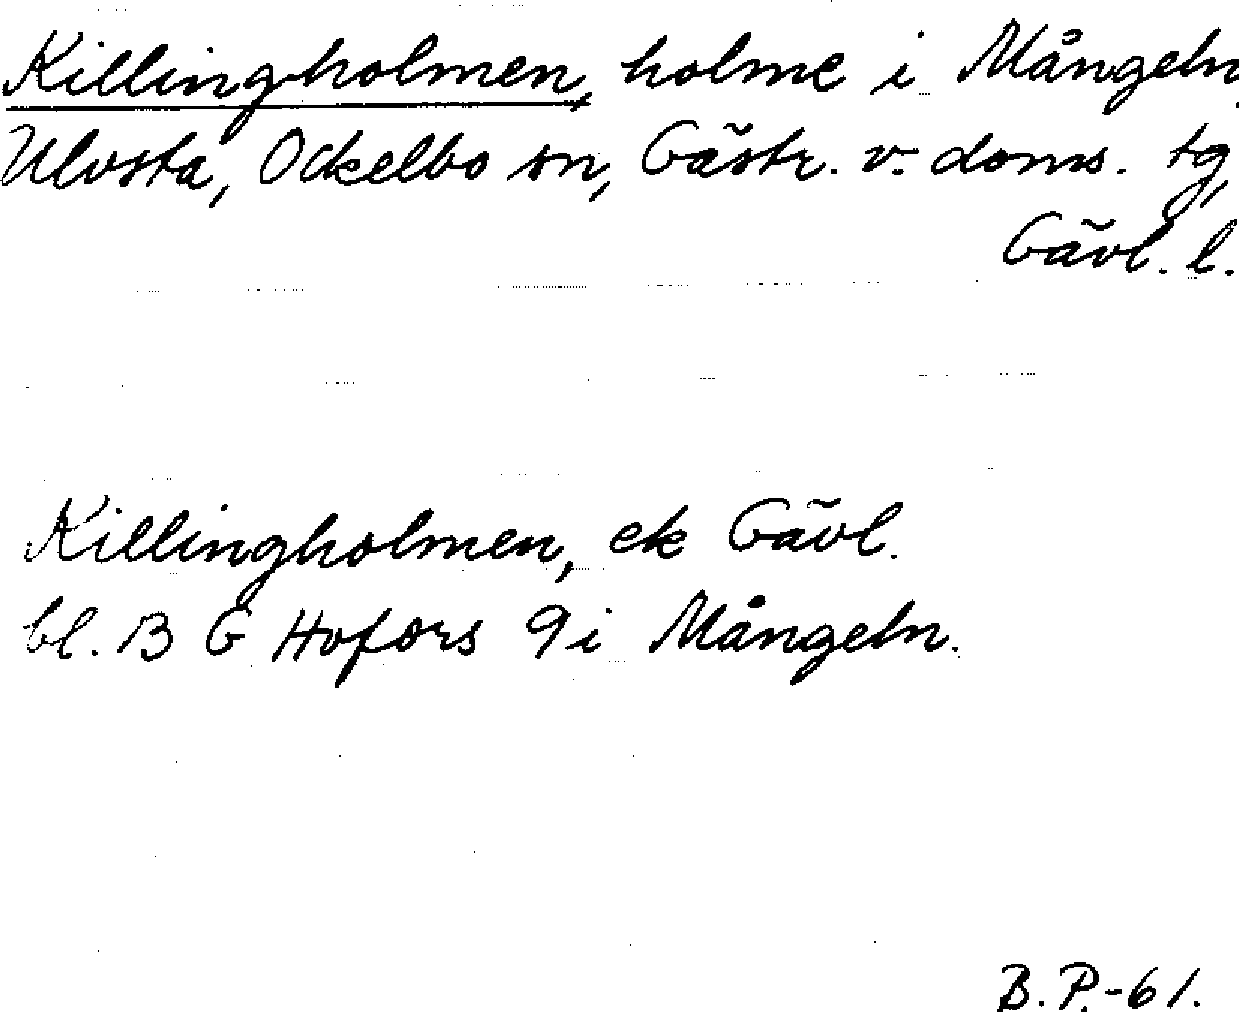 Killingholmen, holme i Mångeln,
Ulvsta, Ockelbo sn, Gästr. v. doms. tg,
Gävl. l.
Killingholmen, ek Gävl.
bl. B G Hofors 9i Mångeln.
B.P.-61.